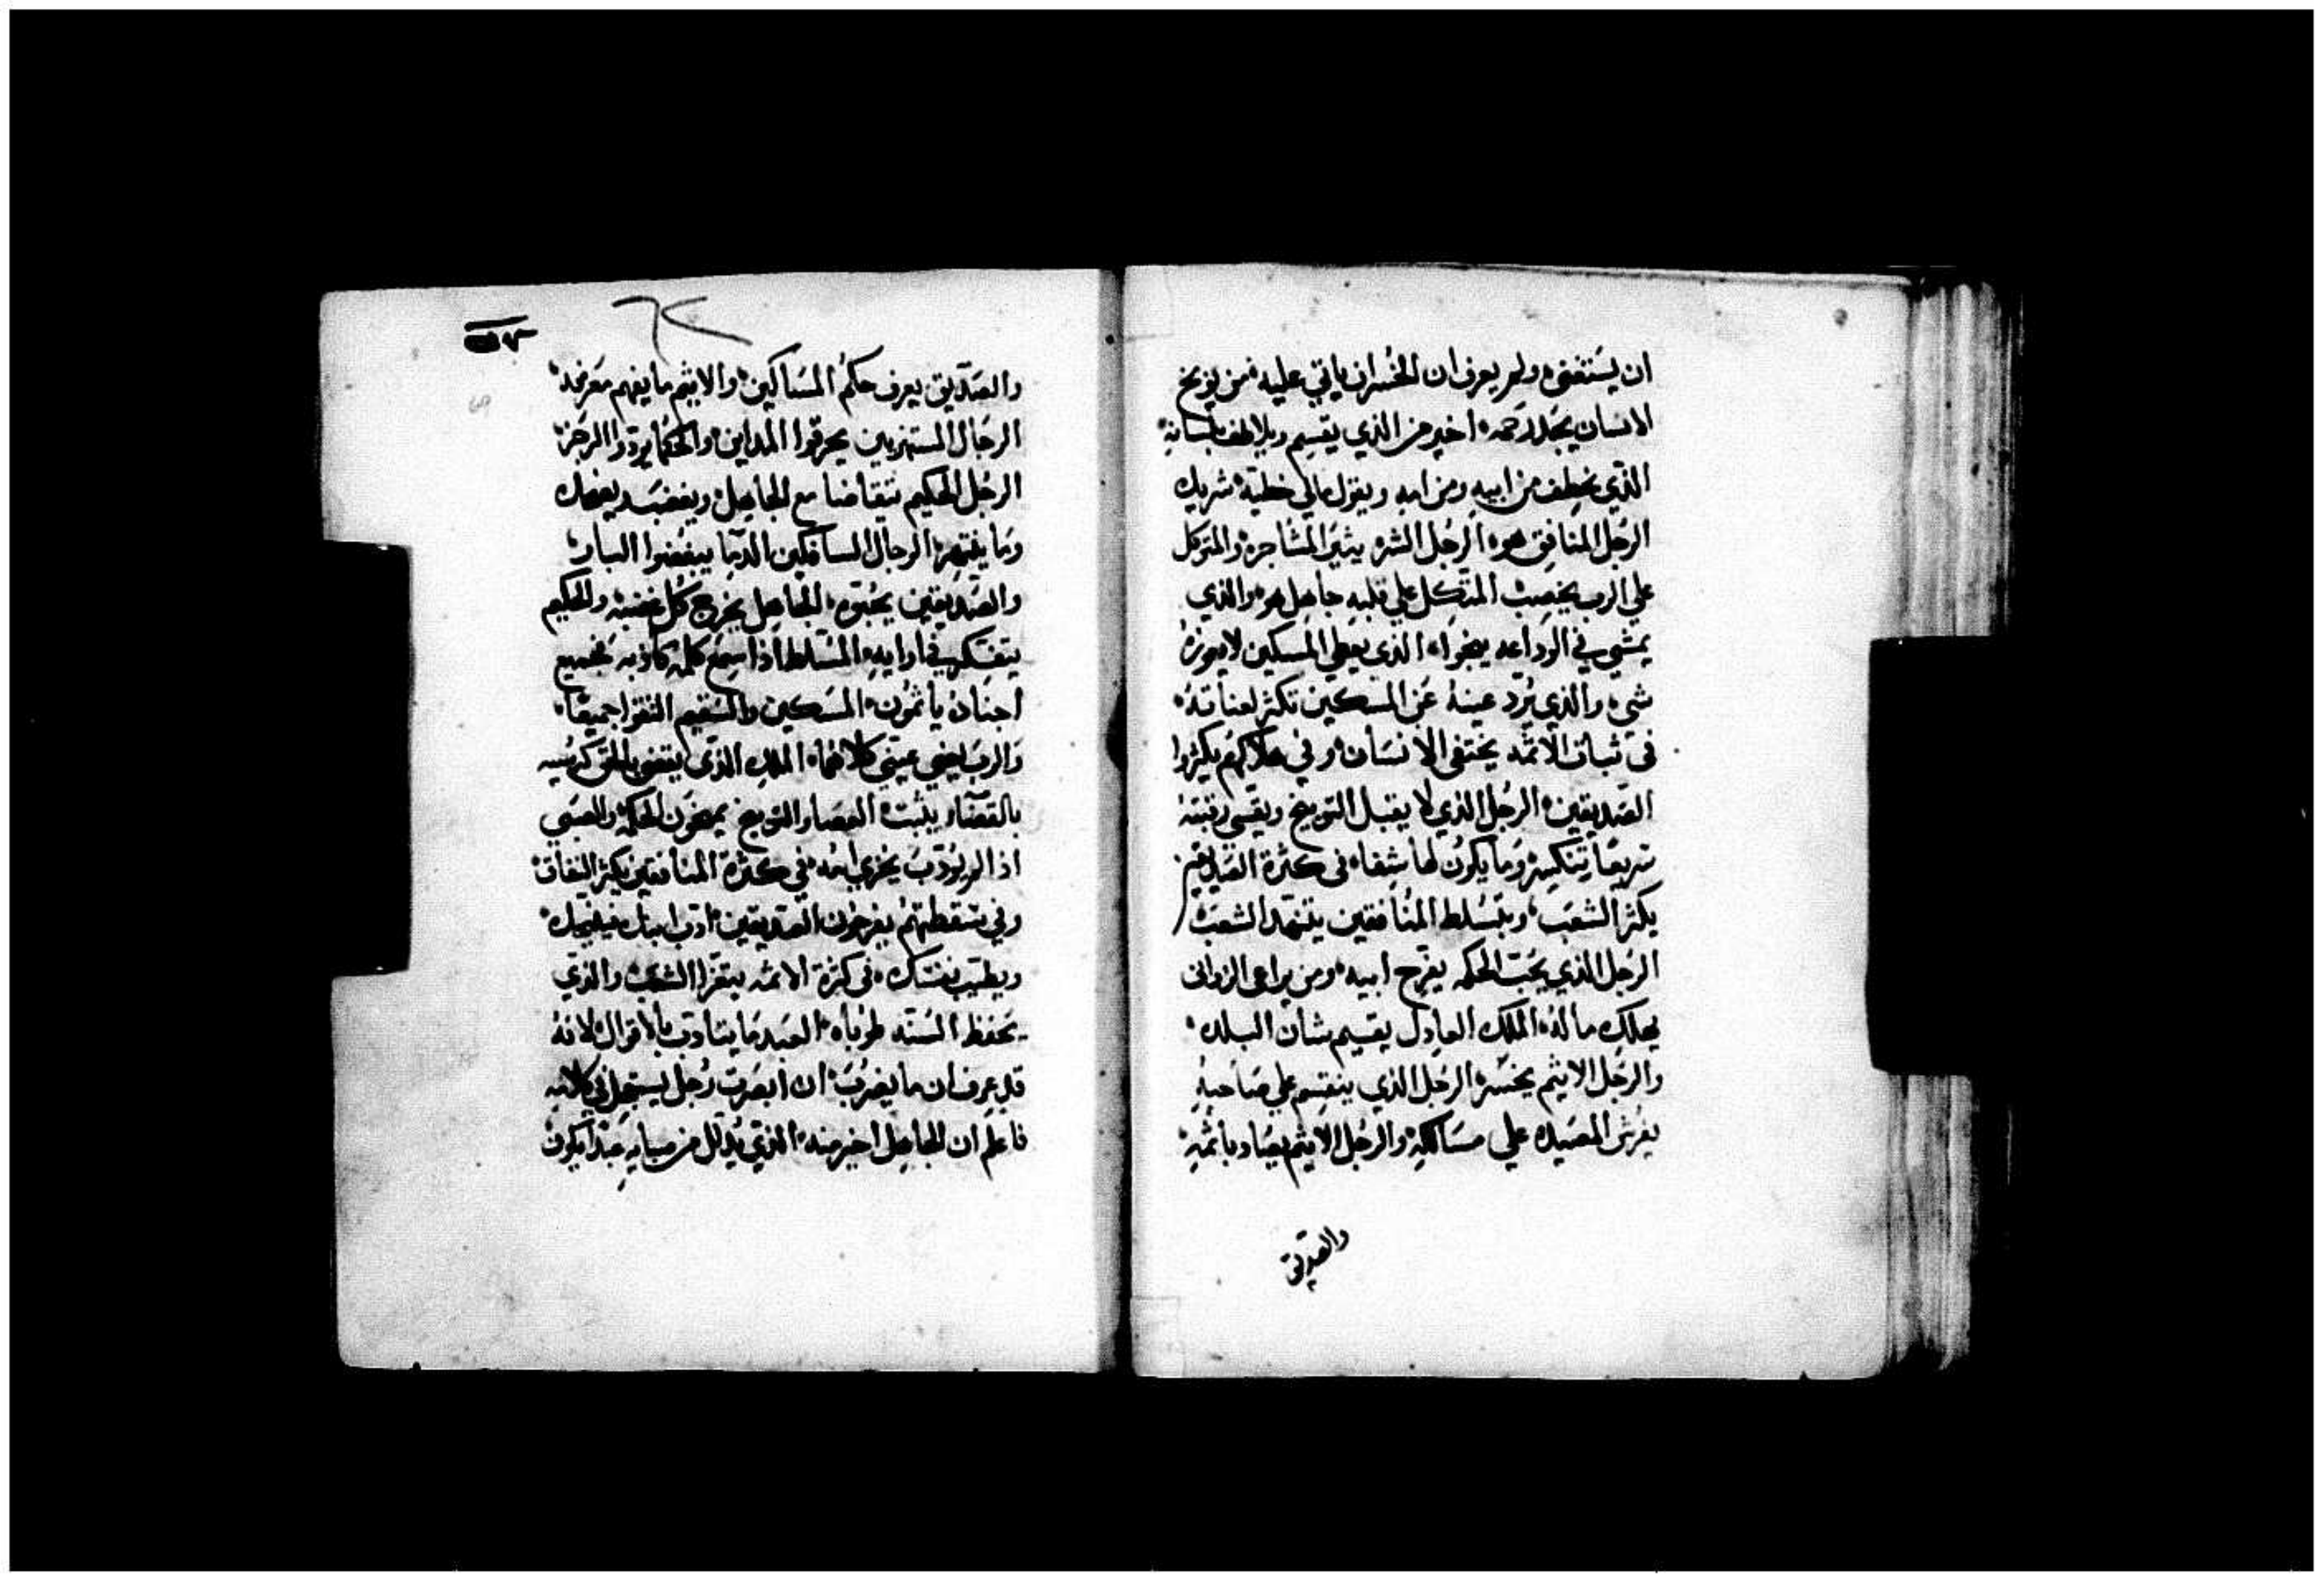 ان يستغني ولم يعرف ان الخسران ياتي عليه من يوبخ
الانسان يجد رحمه اخير من الذي يقسم ويلاطف بلسانه
الذي يخطف من ابيه ومن امه ويقول مالي خطية شريك
الرجل المنافق هو الرجل الشره يثير المشاجره والمتوكل
على الرب يخصب المتكل على قلبه جاهل هو والذي
يمشي في الوداعه ينجوا الذي يعطي المسكين لا يعوزه
شي والذي يرد عينه عن المسكين تكثر لعناته
في ثبات الاثمه يختفى الانسان وفي هلاكهم يكثروا
الصديقين الرجل الذي لا يقبل التوبيخ ويقسي رقبته
سريعا تنكسر وما يكون لها شفاء في كثرة الصديقين
يكثر الشعب وبتسلط المنافقين يتنهد الشعب
الرجل الذي يحب الحكمه يفرح ابيه ومن يراعي الزواني
يهلك ماله الملك العادل يقسيم شان البلده
والرجل الاثيم يخسره الرجل الذي ينقسم على صاحبه
يفرش المصيده على مسالكه والرجل الاثيم يصاد باثمه
والصديق
والصديق يعرف حكم المساكين والاثيم ما يفهم معرفه
الرجال المستهزيين يحرقوا المداين والحكما يردوا الرجز
الرجل الحكيم يتقاضا مع الجاهل ويغضب ويضحك
وما ينتهر الرجال السافكين الدما يبغضوا البار
والصديقين يحبوه الجاهل يخرج كل غضبه والحكيم
يتفتكر في ارايه المسلط اذا سمع كلمه كاذبه فجميع
اجناده ياثمون المسكين والسقيم التقوا جميعا
والرب يضي عيني كلاهما الملك الذي يقضي بالحق كرسيه
بالقضاء يثبت العصا والتوبيخ يمنحون الحكمه والصبي
اذا لم يؤدب يخزي امه في كثرة المنافقين يكثر النفاق
وفي سقطتهم يفرحون الصديقين ادب ابنك فينيحك
ويطيب نفسك في كثرة الاثمه يتعزا الشعب والذي
يحفظ السنه طوباه العبد ما يتادب بالاقوال لانه
قد عرف ان ما يضرب ان ابصرت رجل يستجل في كلامه
فاعلم ان الجاهل اخير منه الذي يدلل من صباه عبدا يكون